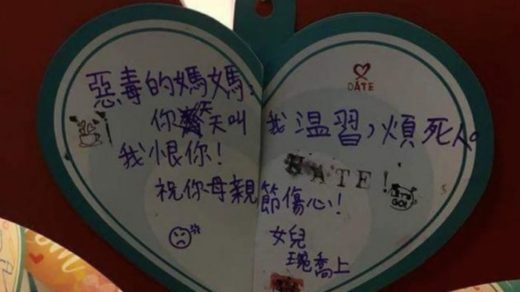 DATE
惡毒的媽媽：
你天叫我溫習，煩死人。
我恨你！
HATE!
祝你母親節傷心！
女兒
喬上